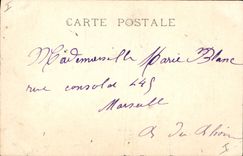 CARTE POSTALE
Mademoiselle Marie Blanc
rue consolat 145
Marseille
B du Rhône